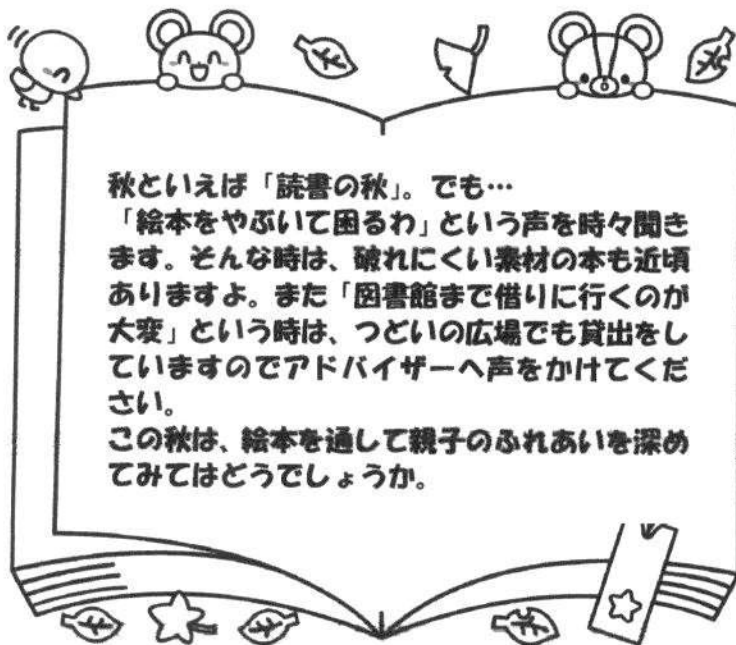 秋といえば「読書の秋」。でも…
「絵本をやぶいて困るわ」という声を時々聞き
ます。そんな時は、破れにくい素材の本も近頃
ありますよ。また「図書館まで借りに行くのが
大変」という時は、つどいの広場でも貸出をし
ていますのでアドバイザーへ声をかけてくだ
さい。
この秋は、絵本を通して親子のふれあいを深め
てみてはどうでしょうか。